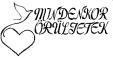 MINDENKOR
ÖRÜLJETEK